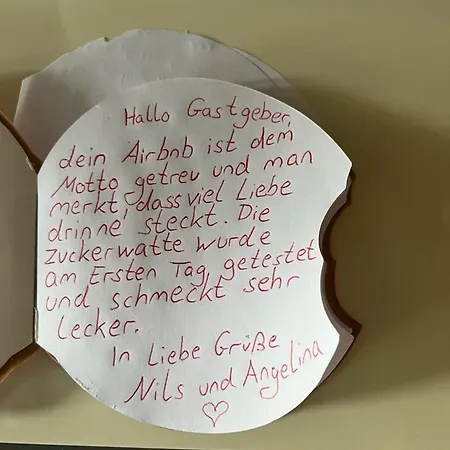 Hallo Gastgeber,
dein Airbnb ist dem
Motto getreu und man
merkt, dass viel Liebe
drinne steckt. Die
zuckerwatte wurde
am Ersten Tag getestet
und schmeckt sehr
Lecker.
In Liebe Grüße
Nils und Angelina
♡